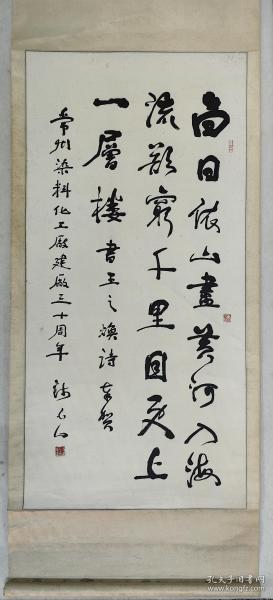 白日依山盡黃河入海
流欲窮千里目更上
一層樓 書王之焕詩 奉贺
常州染料化工廠建廠三十周年
孔夫子旧书网